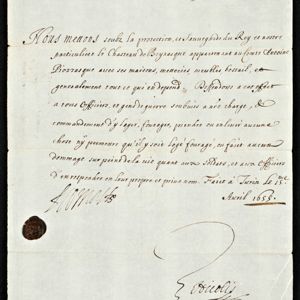 Nous mettons soubz la protection, et sauveguarde du Roy et nostre
particuliere le Chasteau de Piozasque appartenant au Conte Antoine
Piozzasque avec ses maisons, meteries meubles bestail, et
generalement tout ce qui en depend. Deffendons a cet effect
a tous Officiers, et gens de guerre soubmis a nre charge, &
commandement d'y loger, fourager, prendre ou enlever aucune
chose ny permettre qu'il y soit logé fourragé, ou fait aucun
dommage sur peine de la vie quant aux soldats, et aux Officiers
d'en respondre en leur propre et privé nom. Faict à Turin le 15.me
Avril 1655.